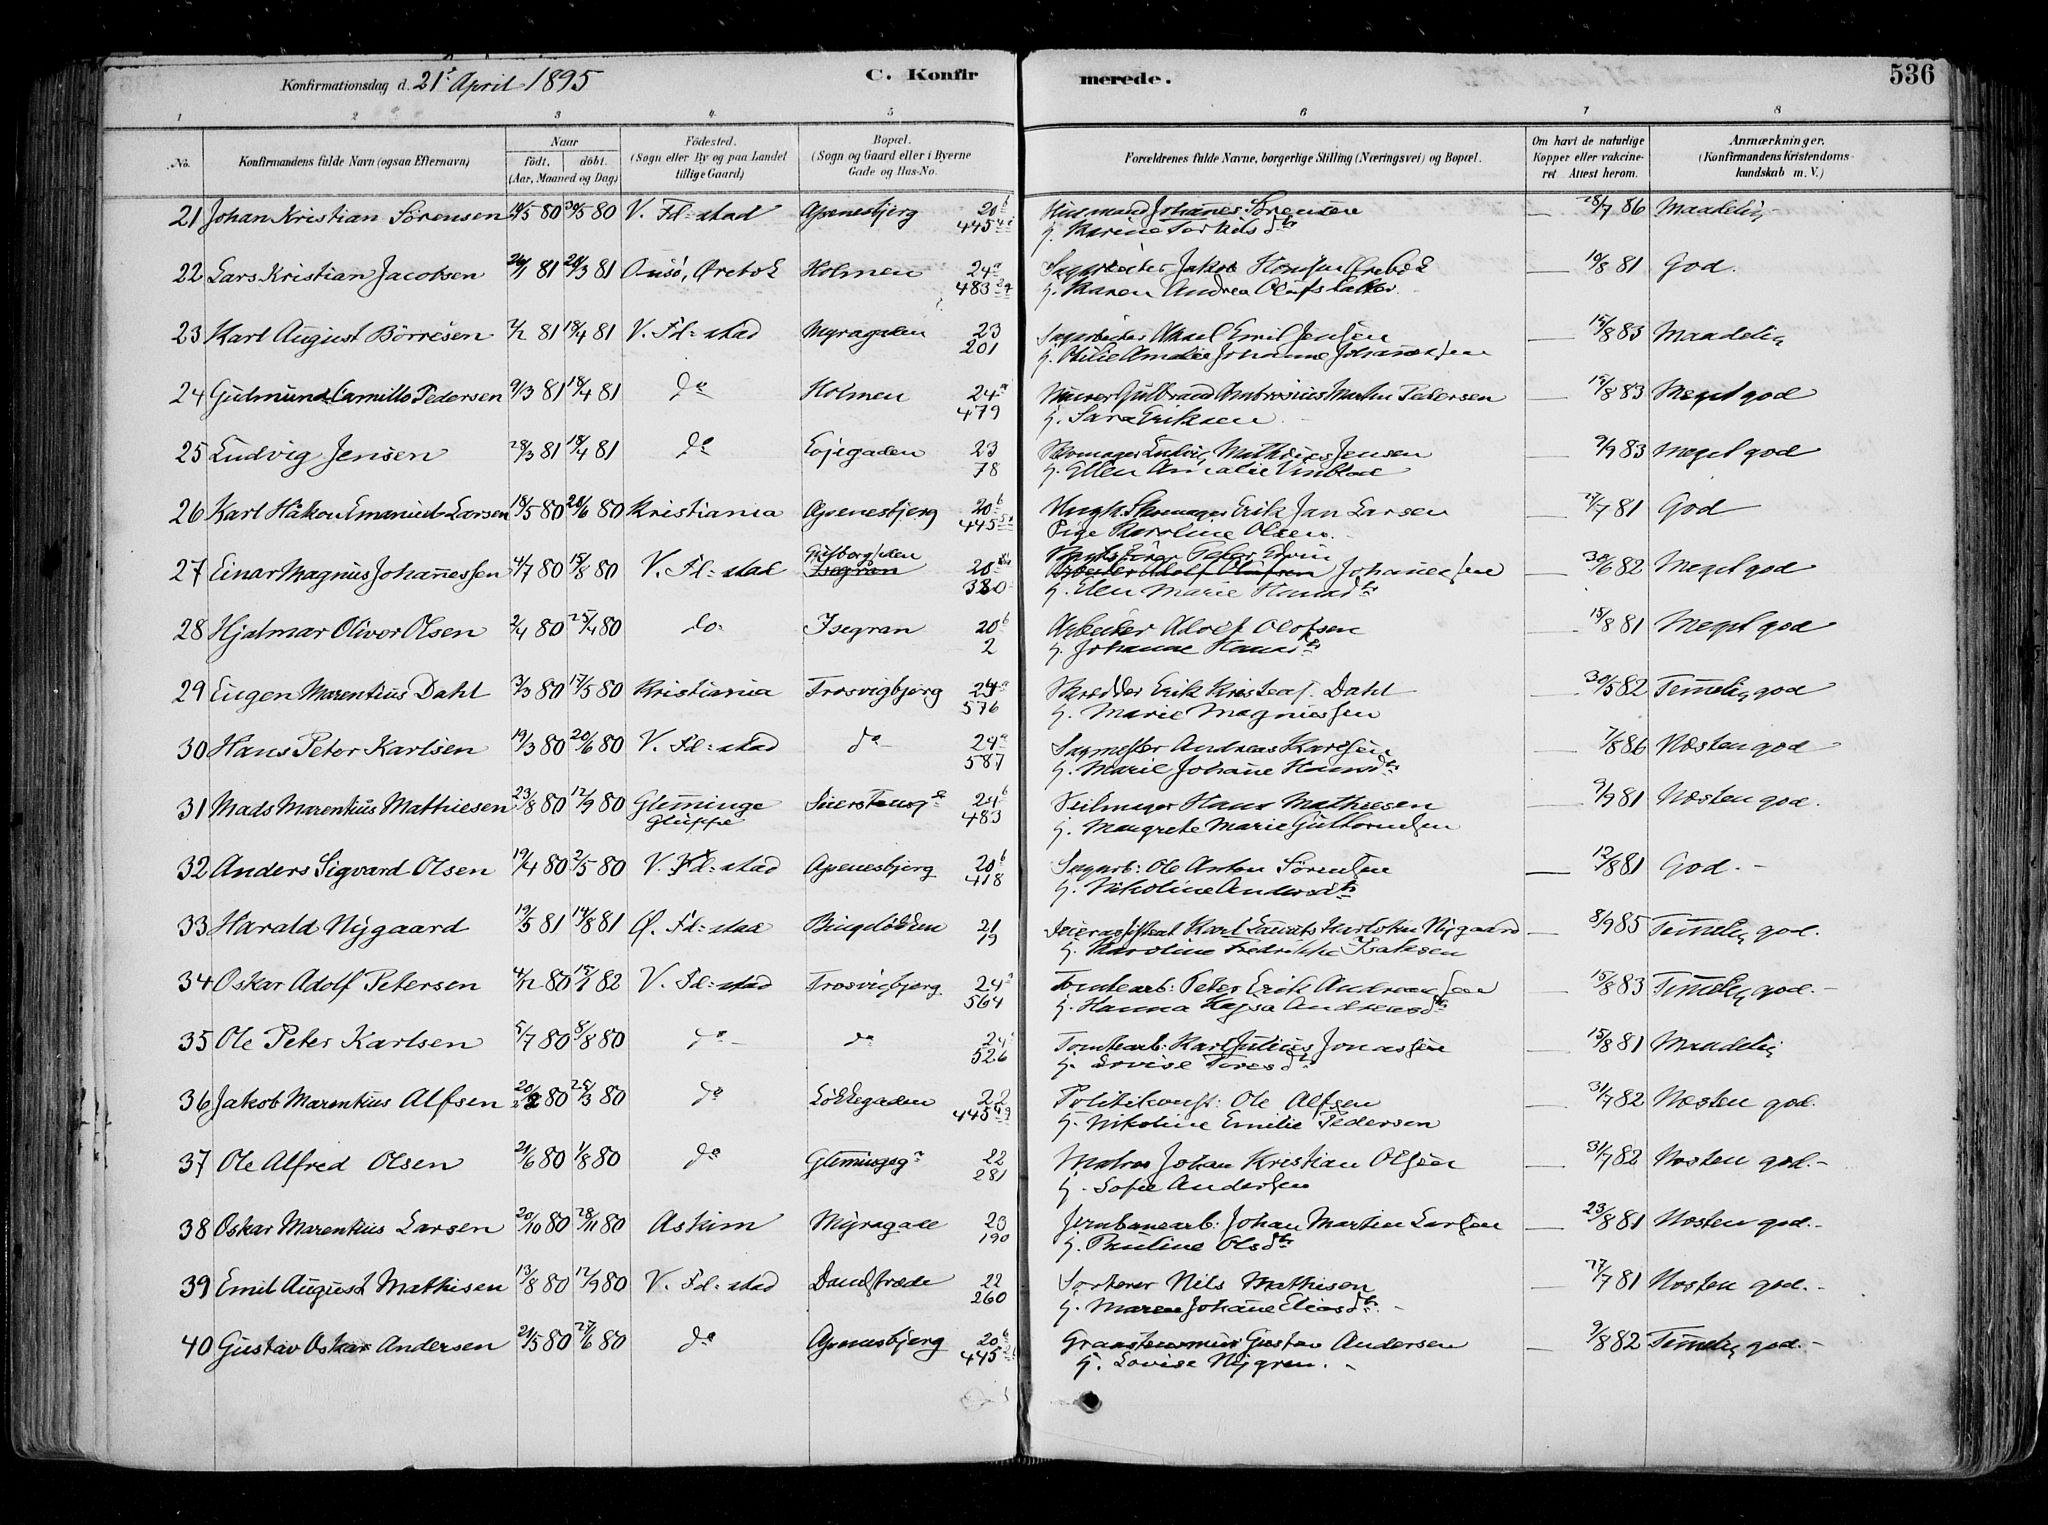 Konfirmationsdag d. 21' April 1895 C. Konfir merede. 536
1 2 3 4 5 6 7 8
No. Konfirmandens fulde Navn (ogsaa Efternavn) Naar født, døbt. (Aar, Maaned og Dag) Fødested. (Sogn eller By og paa Landet tillige Gaard) Bopæl. (Sogn og Gaard eller i Byerne Gade og Hus-No. Forældrenes fulde Navne, borgerlige Stilling (Næringsvei) og Bopæl. Om havt de naturlige Kopper eller vakcineret. Attest herom. Anmærkninger. (Konfirmandens Kristendomskundskab m. V.)
21 Johan Kristian Sørensen 80 30/5 80 V. Fd=stad Apenesbjerg 20b 445 Husmand Johannes Sørensen — 28/7 86 Maadelig
G. Karine Torkilsdtr
22 Lars Kristian Jacobsen 26/1 81 81 Onsø, Ørebek Holmen 24a 483 Jakob Ørebek — 19/8 81 God.
G. Karen Andrea
23 Karl August Børresen 81 18/4 81 V. Fd=stad Myragaden 23 201 Emil Jensen — 15/8 83 Maadelig
G. Otilie Amalie Johanne Johannessen
24 Gudmund Camillo Pedersen 9/3 81 18/4 81 do Holmen 24a 479 Murer Gulbrand Ambrosius Martin Pedersen — 15/8 83 Meget god
G. Sara Eriksen
25 Ludvig Jensen 28/3 81 18/4 81 do Løjegaden 23 78 Ludvig Mathias Jensen — 9/9 83 Meget god
G. Ellen Amalie
26 Karl Håkon Emanuel Larsen 18/5 80 20/6 80 Kristiania Apenesbjerg 20b 445 Ungk. Skomager Erik Jan Larsen — 81 God
Pige Karoline Olsen
27 Einar Magnus Johannessen 4/7 80 15/8 80 V. Fd=stad Isegran 20 320 Peter Edvin Arbeider Adolf Olafsen Johannessen — 30/6 82 Meget god
G. Elen Marie Hansdtr
28 Hjalmar Olivor Olsen 2/4 80 25/4 80 do Isegran 20b 2 Arbeider Adolf Olofsen — 15/8 81 Meget god
G. Johanne Hansdtr
29 Eugen Marentius Dahl 3/3 80 17/5 80 Kristiania Trosvigbjerg 24a 576 Skredder Erik Kristeaf. Dahl — 30/5 82 Temmelig god
G. Marie Magnussen
30 Hans Peter Karlsen 19/3 80 20/6 80 V. Fd=stad do 24a 587 Sagmester Andreas Karlsen — 7/8 86 Næsten god
G. Marie Johanne Hansdtr
31 Mads Marentius Mathiesen 23/8 80 12/9 80 Glemminge Gluppe 24b 483 Seilmager Hans Mathiesen — 9/9 81 Næsten god.
G. Maugrete Marie Guttormsen
32 Anders Sigvard Olsen 19/4 80 2/5 80 V. Fd=stad Apenesbjerg 20b 418 Sagarb: Ole Anton Sørensen — 12/8 81 God.
G. Nikoline Andersdtr
33 Harald Nygaard 19/5 81 14/8 81 Ø. Fd=stad Bingeløkken 21 19 Karl Laurits Nygaard — 8/9 85 Temmelig god.
G. Karoline Fredrikke Isaksen
34 Oskar Adolf Petersen 4/12 80 82 V. Fd=stad Trosvigbjerg 24a 564 Tomtearb: Peter Erik Andreassen — 15/8 83 Temmelig god.
G. Hanna Kajsa Andreasdtr
35 Ole Peter Karlsen 5/7 80 8/8 80 do do 24a 526 Tomtearb: Karl Julius Jonassen — 15/8 81 Maadelig
G. Lovise Toresdtr
36 Jakob Marentius Alfsen 20/2 80 25/3 80 do Løkkegaden 22 445 Politikonst: Ole Alfsen — 31/7 82 Næsten god.
G. Nikoline Emilie Pedersen
37 Ole Alfred Olsen 21/6 80 1/8 80 do Glemmingeg 22 281 Matros Johan Kristian Olsen — 31/7 82 Næsten god.
G. Sofie Andersen
38 Oskar Marentius Larsen 20/10 80 28/11 80 Askim Myragade 23 190 Jernbanearb: Johan Martin Larsen — 23/8 81 Næsten god.
G. Pauline Olsdtr
39 Emil August Mathisen 13/8 80 12/9 80 V. Fd=stad Damstræde 22 260 Sorterer Nils Mathison — 27/7 81 Næsten god.
G. Maren Johanne Eliasdtr
40 Gustav Oskar Andersen 21/5 80 27/6 80 do Apenesbjerg 20b 445 Graastensmur Gustav Andersen — 9/8 82 Temmelig god.
G. Lovise Nygren.